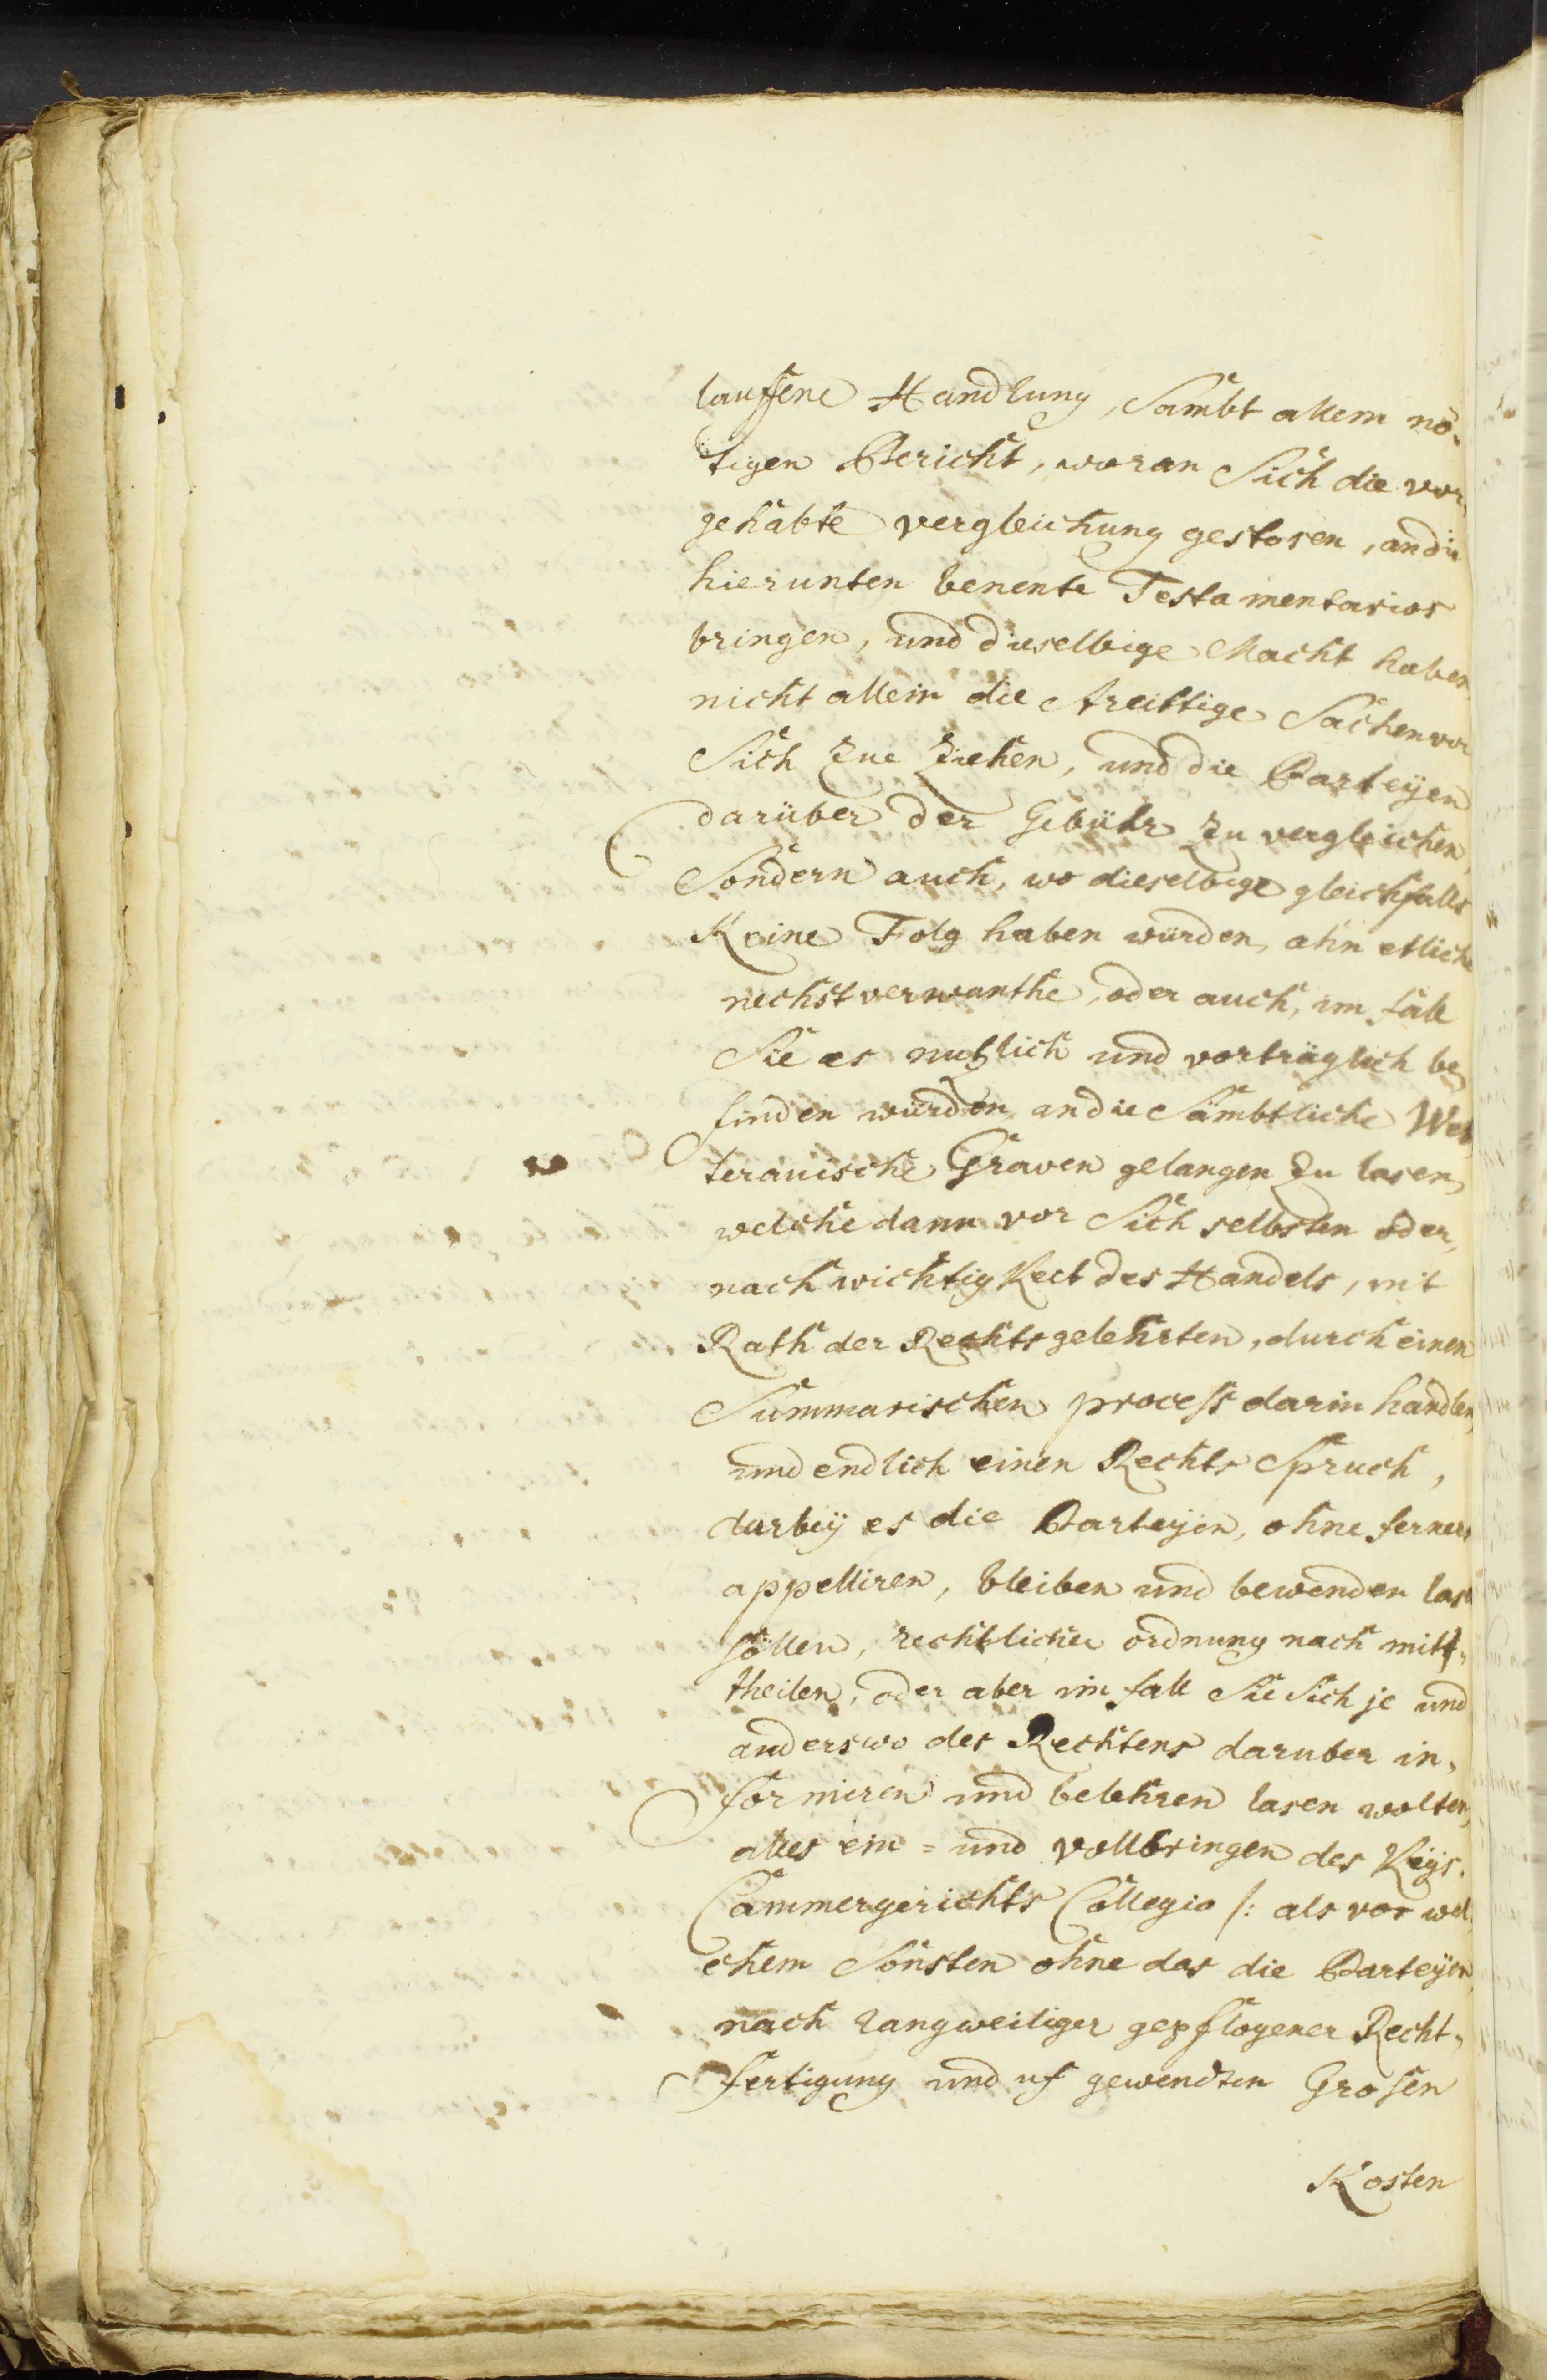 lauffene Handlung, Sambt allem nö-
tigen Bericht, woran Sich die vor,
gehabte vergleichung gestosen, an die
hierunten benente Testamentarios
bringen, und dieselbige Macht haben
nicht allein die streittige Sachen vor
Sich zue ziehen, und die Parteyen
darüber der Gebühr zu vergleichen,
Sondern auch, wo dieselbige gleichfalls
Keine Folg haben würden, ahn etliche
nechst verwanthe, oder auch, im fall
Sie es nutzlich und vorträglich be,
finden würden, an die Sämbtliche Wet
terauische Graven gelangen zu lasen,
welche dann vor Sich selbsten oder,
nach wichtigKeit des Handels, mit
Rath der Rechtsgelehrten, durch einen
Summarischen process darin handlen,
und endlich einen Rechts Spruch,
darbeÿ es die Parteyen, ohne ferners
appelliren, bleiben und bewenden lasen
söllen, rechtlicher ordnung nach mitt,
theilen, oder aber im fall Sie Sich je und
anderswo des Rechtens daruber in,
formiren und belehren lasen wolten,
alles ein = und vollbringen des Keÿs.
Cammergerichts Collegio /: als vor wel,
chem Sönsten ohne das die Parteÿen,
nach langweiliger gepflogener Recht,
fertigung und uf gewendten Grosen
Kosten